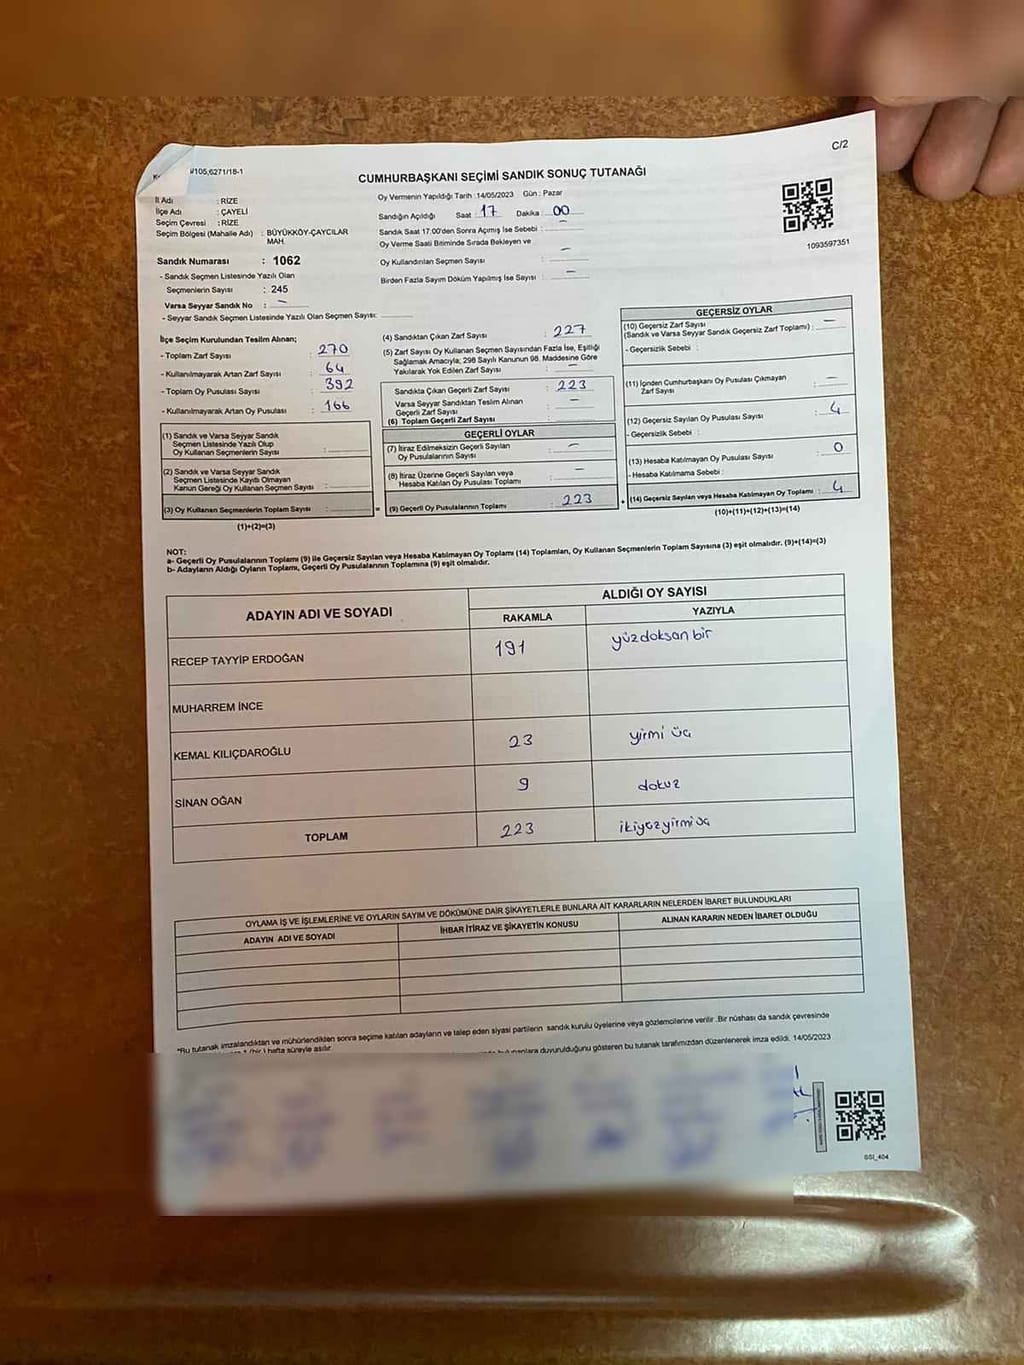 C/2
/105,6271/18-1
CUMHURBAŞKANI SEÇİMİ SANDIK SONUÇ TUTANAĞI
İl Adı : RİZE
İlçe Adı : ÇAYELİ
Seçim Çevresi : RİZE
Seçim Bölgesi (Mahalle Adı) : BÜYÜKKÖY-ÇAYCILAR
MAH.
Sandık Numarası : 1062
- Sandık Seçmen Listesinde Yazılı Olan
Seçmenlerin Sayısı : 245
Varsa Seyyar Sandık No : –
- Seyyar Sandık Seçmen Listesinde Yazılı Olan Seçmen Sayısı:
Oy Vermenin Yapıldığı Tarih : 14/05/2023 Gün : Pazar
Sandığın Açıldığı Saat 17 Dakika 00
Sandık Saat 17:00'den Sonra Açımış İse Sebebi : –
Oy Verme Saati Bitiminde Sırada Bekleyen ve
Oy Kullandırılan Seçmen Sayısı : –
Birden Fazla Sayım Döküm Yapılmış İse Sayısı : –
1093597351
İlçe Seçim Kurulundan Teslim Alınan;
- Toplam Zarf Sayısı : 270
- Kullanılmayarak Artan Zarf Sayısı : 64
- Toplam Oy Pusulası Sayısı : 392
- Kullanılmayarak Artan Oy Pusulası : 166
(1) Sandık ve Varsa Seyyar Sandık
Seçmen Listesinde Yazılı Olup
Oy Kullanan Seçmenlerin Sayısı :
(2) Sandık ve Varsa Seyyar Sandık
Seçmen Listesinde Kayıtlı Olmayan
Kanun Gereği Oy Kullanan Seçmen Sayısı :
(3) Oy Kullanan Seçmenlerin Toplam Sayısı :
(1)+(2)=(3)
(4) Sandıktan Çıkan Zarf Sayısı : 227
(5) Zarf Sayısı Oy Kullanan Seçmen Sayısından Fazla İse, Eşitliği
Sağlamak Amacıyla; 298 Sayılı Kanunun 98. Maddesine Göre
Yakılarak Yok Edilen Zarf Sayısı : –
Sandıkta Çıkan Geçerli Zarf Sayısı : 223
Varsa Seyyar Sandıktan Teslim Alınan
Geçerli Zarf Sayısı : –
(6) Toplam Geçerli Zarf Sayısı :
GEÇERLİ OYLAR
(7) İtiraz Edilmeksizin Geçerli Sayılan
Oy Pusulalarının Sayısı : –
(8) İtiraz Üzerine Geçerli Sayılan veya
Hesaba Katılan Oy Pusulası Toplamı : –
(9) Geçerli Oy Pusulalarının Toplamı : 223
GEÇERSİZ OYLAR
(10) Geçersiz Zarf Sayısı
(Sandık ve Varsa Seyyar Sandık Geçersiz Zarf Toplamı) : –
- Geçersizlik Sebebi :
(11) İçinden Cumhurbaşkanı Oy Pusulası Çıkmayan
Zarf Sayısı : –
(12) Geçersiz Sayılan Oy Pusulası Sayısı : 4
- Geçersizlik Sebebi :
(13) Hesaba Katılmayan Oy Pusulası Sayısı : 0
- Hesaba Katılmama Sebebi :
(14) Geçersiz Sayılan veya Hesaba Katılmayan Oy Toplamı : 4
(10)+(11)+(12)+(13)=(14)
NOT:
a- Geçerli Oy Pusulalarının Toplamı (9) ile Geçersiz Sayılan veya Hesaba Katılmayan Oy Toplamı (14) Toplamları, Oy Kullanan Seçmenlerin Toplam Sayısına (3) eşit olmalıdır. (9)+(14)=(3)
b- Adayların Aldığı Oyların Toplamı, Geçerli Oy Pusulalarının Toplamına (9) eşit olmalıdır.
ADAYIN ADI VE SOYADI ALDIĞI OY SAYISI
RAKAMLA YAZIYLA
RECEP TAYYİP ERDOĞAN 191 yüzdoksan bir
MUHARREM İNCE
KEMAL KILIÇDAROĞLU 23 yirmi üç
SİNAN OĞAN 9 dokuz
TOPLAM 223 ikiyüzyirmiüç
OYLAMA İŞ VE İŞLEMLERİNE VE OYLARIN SAYIM VE DÖKÜMÜNE DAİR ŞİKAYETLERLE BUNLARA AİT KARARLARIN NELERDEN İBARET BULUNDUKLARI
ADAYIN ADI VE SOYADI İHBAR İTİRAZ VE ŞİKAYETİN KONUSU ALINAN KARARIN NEDEN İBARET OLDUĞU
*Bu tutanak imzalandıktan ve mühürlendikten sonra seçime katılan adayların ve talep eden siyasi partilerin sandık kurulu üyelerine veya gözlemcilerine verilir. Bir nüshası da sandık çevresinde
1 (bir) hafta süreyle asılır.
duyurulduğunu gösteren bu tutanak tarafımızdan düzenlenerek imza edildi. 14/05/2023
SSI_404